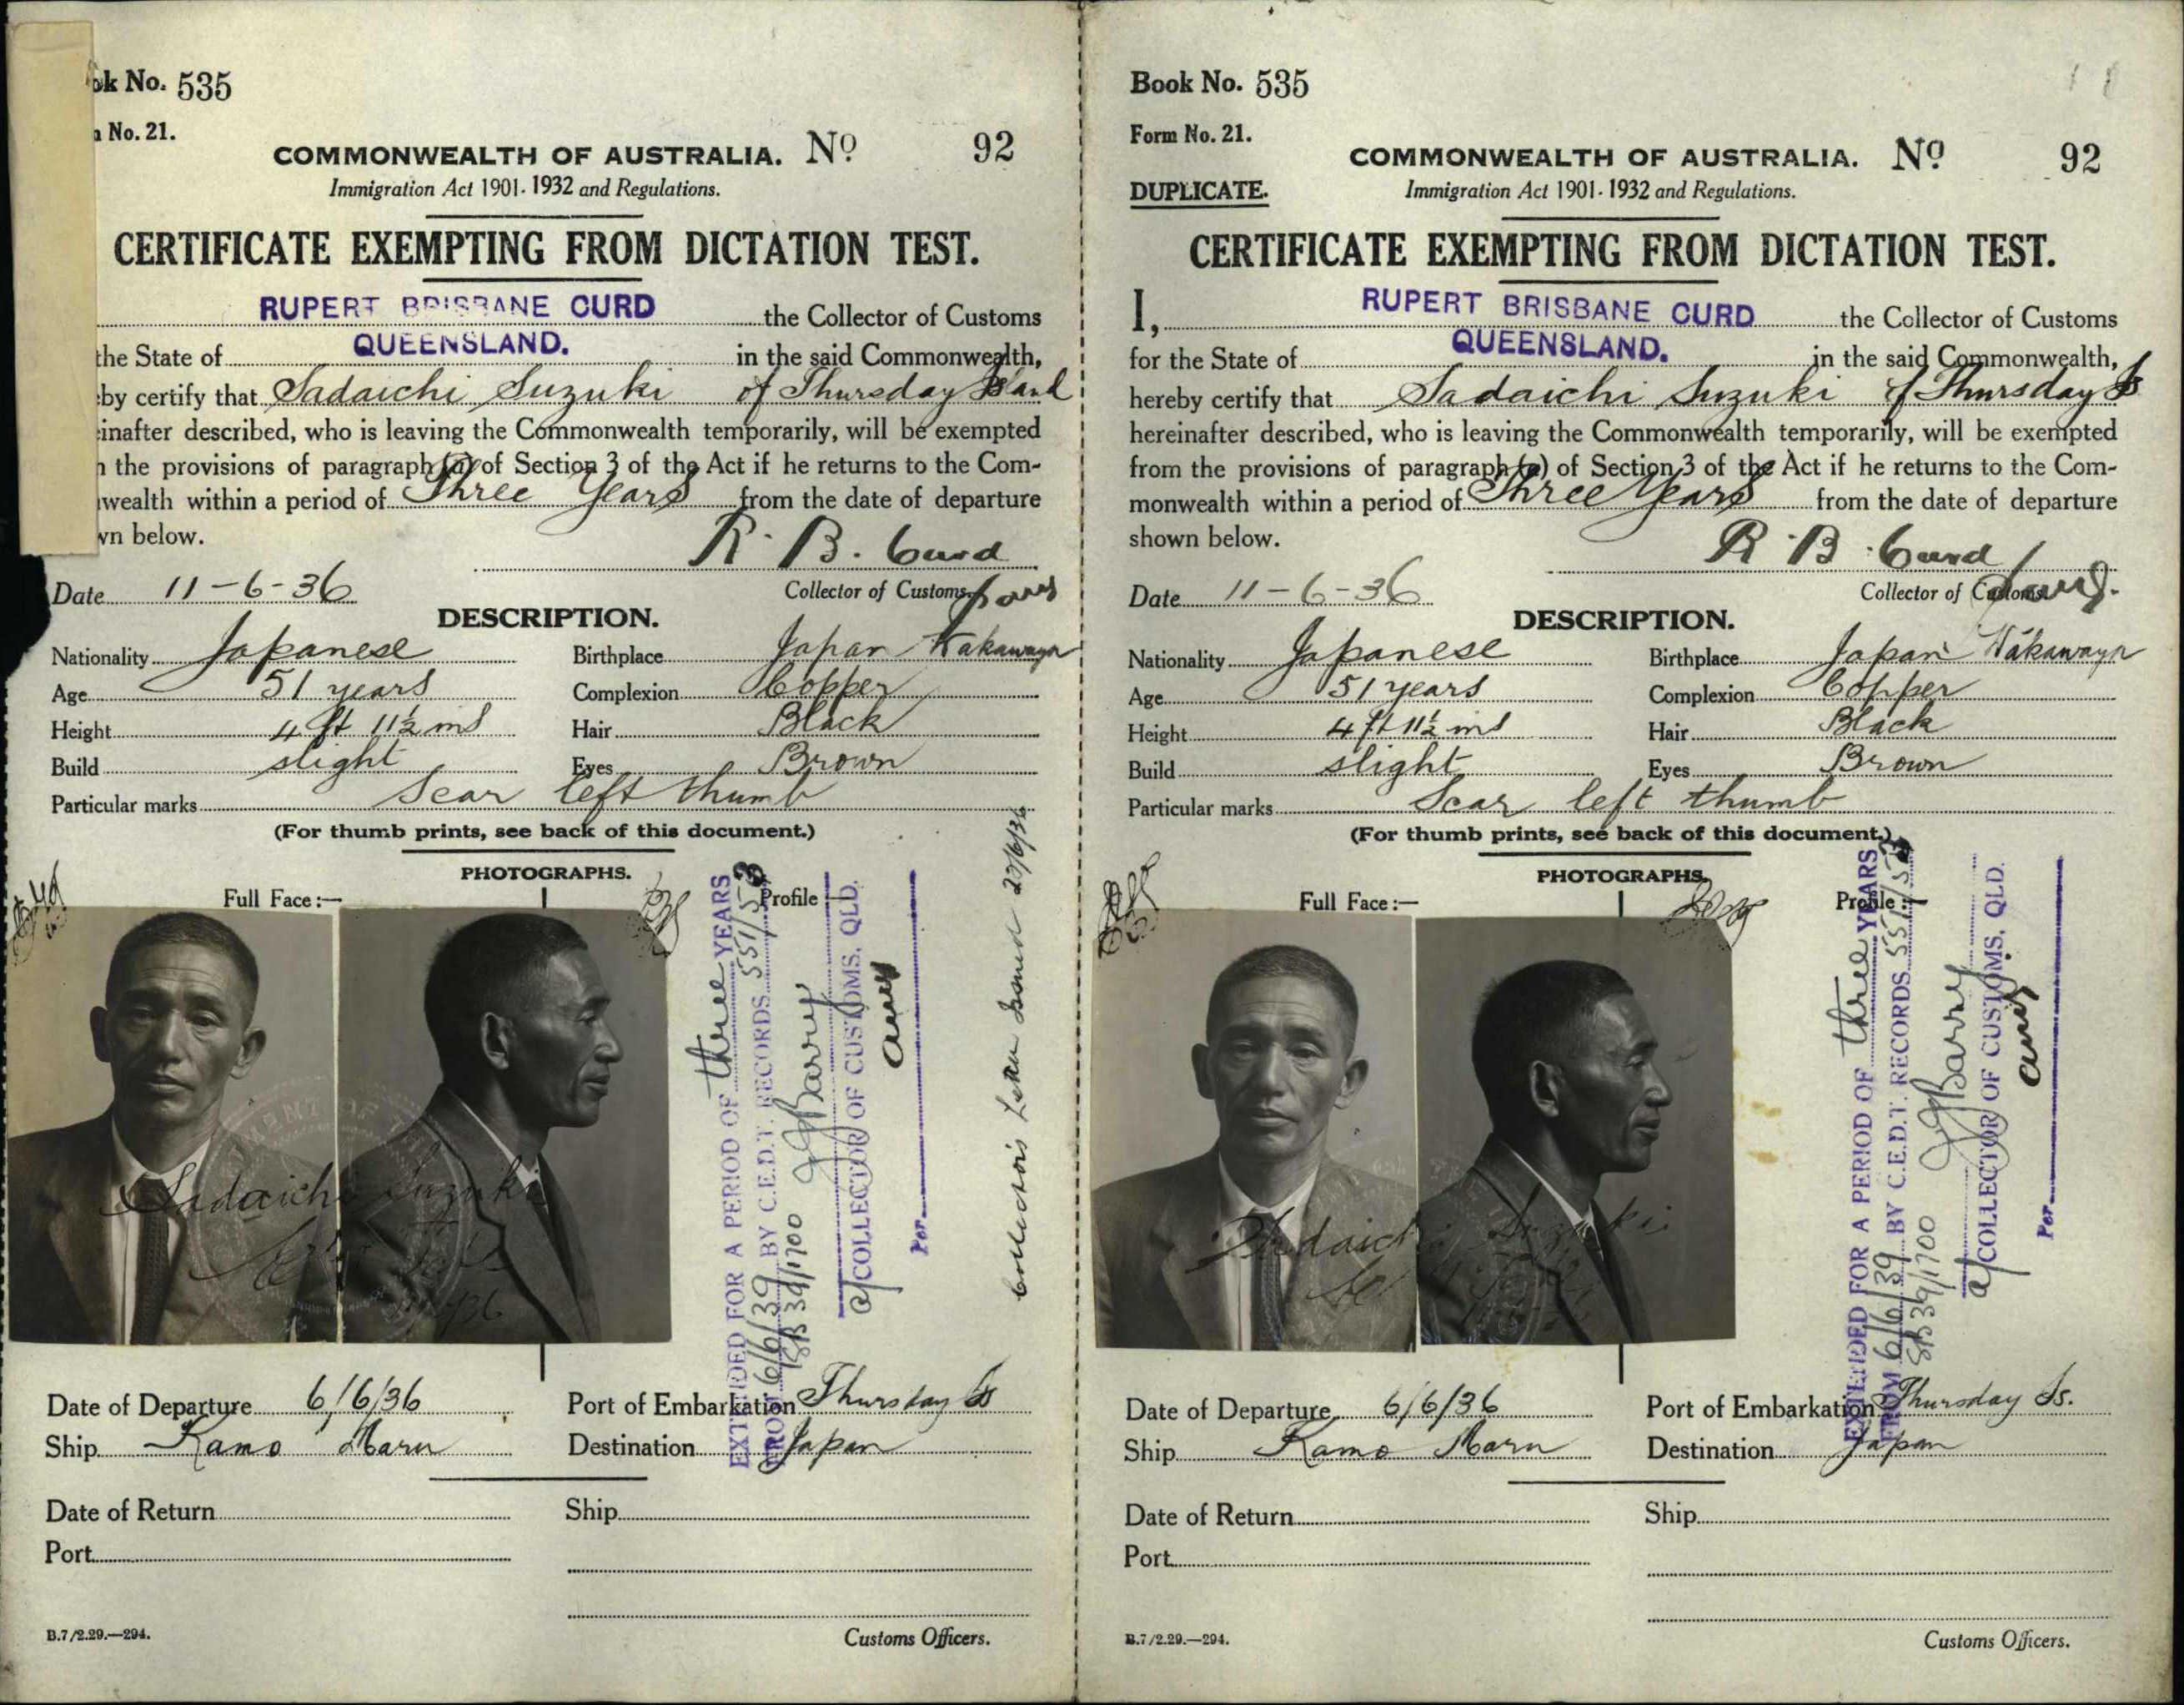 ok No. 535
No. 21.
COMMONWEALTH OF AUSTRALIA. No 92
Immigration Act 1901-1932 and Regulations.
CERTIFICATE EXEMPTING FROM DICTATION TEST.
RUPERT BRISBANE CURD the Collector of Customs
the State of QUEENSLAND. in the said Commonwealth,
by certify that Sadaichi Suzuki of Thursday Island
inafter described, who is leaving the Commonwealth temporarily, will be exempted
the provisions of paragraph (a) of Section 3 of the Act if he returns to the Com-
wealth within a period of Three Years from the date of departure
wn below.
R. B. Curd
Date 11-6-36 Collector of Customs
DESCRIPTION.
Nationality Japanese Birthplace Japan Wakawaya
Age 51 years Complexion Copper
Height 4 ft 11½ ins Hair Black
Build slight Eyes Brown
Particular marks Scar left thumb
(For thumb prints, see back of this document.)
PHOTOGRAPHS.
Full Face:— Profile
Sadaichi Suzuki
EXTENDED FOR A PERIOD OF three YEARS
FROM 6/6/39 BY C.E.D.T. RECORDS 551/53
SB39/1700
a/COLLECTOR OF CUSTOMS, QLD.
Per
Collector's Letter Issued 23/6/36
Date of Departure 6/6/36 Port of Embarkation Thursday Is
Ship Kamo Maru Destination Japan
Date of Return Ship
Port
B.7/2.29.—294. Customs Officers.
Book No. 535
Form No. 21.
COMMONWEALTH OF AUSTRALIA. No 92
DUPLICATE. Immigration Act 1901-1932 and Regulations.
CERTIFICATE EXEMPTING FROM DICTATION TEST.
I, RUPERT BRISBANE CURD the Collector of Customs
for the State of QUEENSLAND. in the said Commonwealth,
hereby certify that Sadaichi Suzuki of Thursday Is
hereinafter described, who is leaving the Commonwealth temporarily, will be exempted
from the provisions of paragraph (a) of Section 3 of the Act if he returns to the Com-
monwealth within a period of Three Years from the date of departure
shown below.
R. B. Curd
Date 11-6-36 Collector of Customs.
DESCRIPTION.
Nationality Japanese Birthplace Japan Wakawaya
Age 51 years Complexion Copper
Height 4 ft 11½ ins Hair Black
Build slight Eyes Brown
Particular marks Scar left thumb
(For thumb prints, see back of this document.)
PHOTOGRAPHS.
Full Face:— Profile:—
Sadaichi Suzuki
EXTENDED FOR A PERIOD OF three YEARS
FROM 6/6/39 BY C.E.D.T. RECORDS 551/53
SB39/1700
a/COLLECTOR OF CUSTOMS, QLD.
Per
Date of Departure 6/6/36 Port of Embarkation Thursday Is.
Ship Kamo Maru Destination Japan
Date of Return Ship
Port
B.7/2.29.—294. Customs Officers.